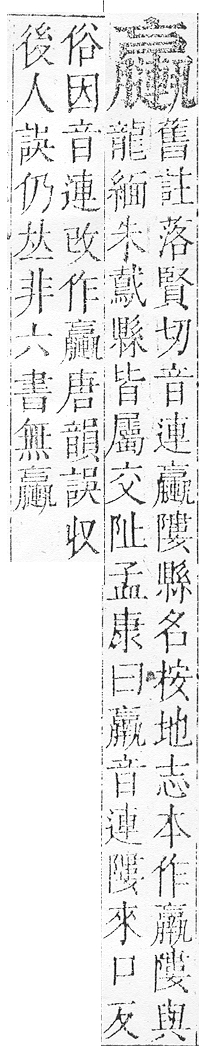 舊註落賢切音連𨻻縣名按地志本作羸𨻻與
龍緬朱䳒縣皆屬交阯孟康曰羸音連𨻻來口反
俗因音連改作唐韻誤収
後人誤仍𠀤非六書無